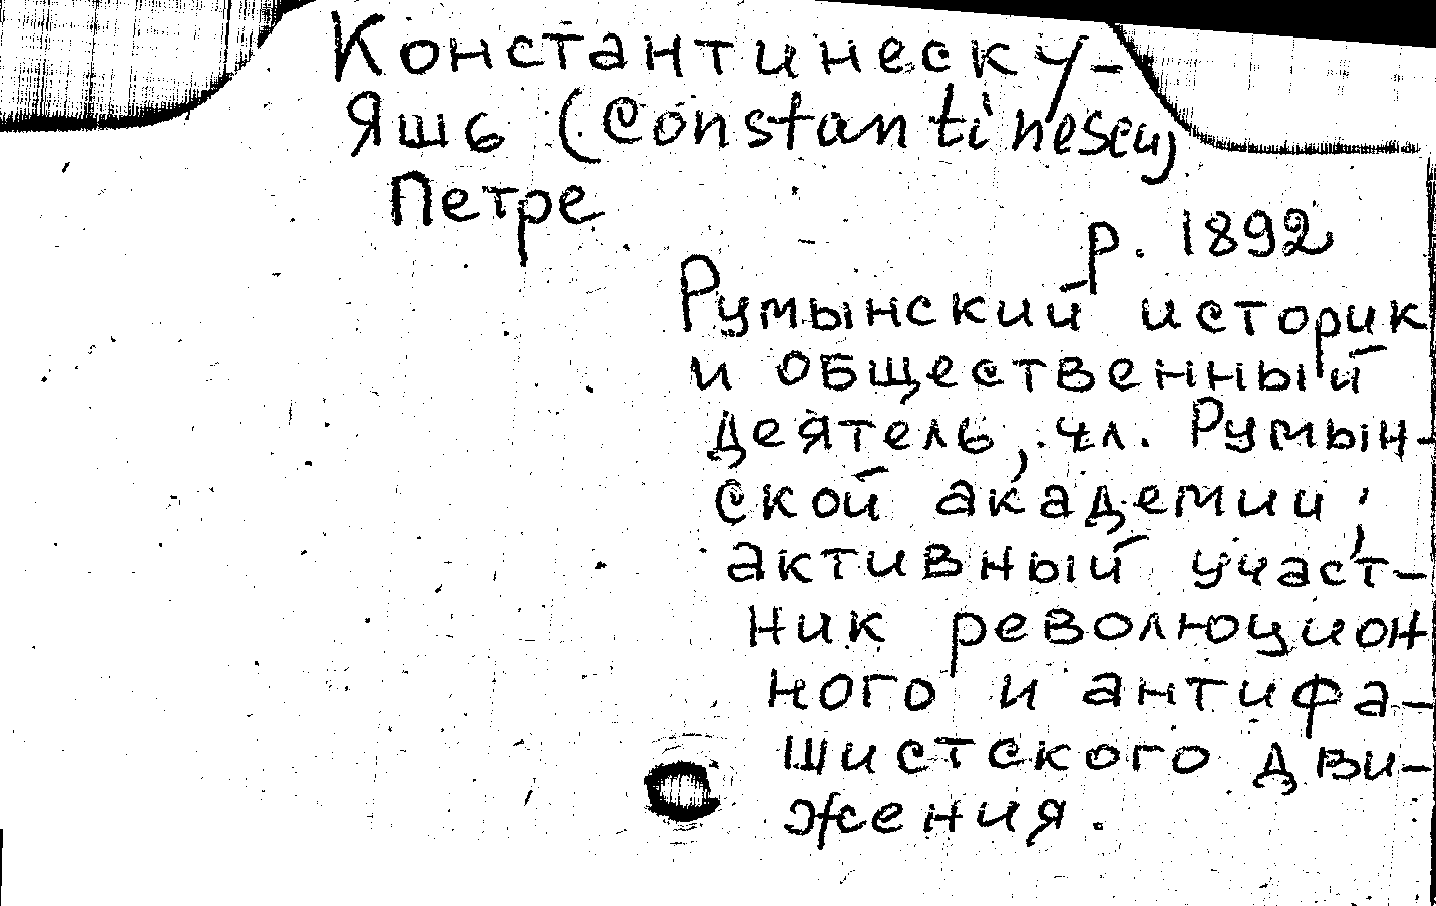 Константинеску-
Яшь (Constantinescu)
Петре
р. 1892
Румынский историк
и общественный
деятель, чл. Румын-
ской академии;
активный участ-
ник революцион
ного и антифа-
шистского дви-
жения.